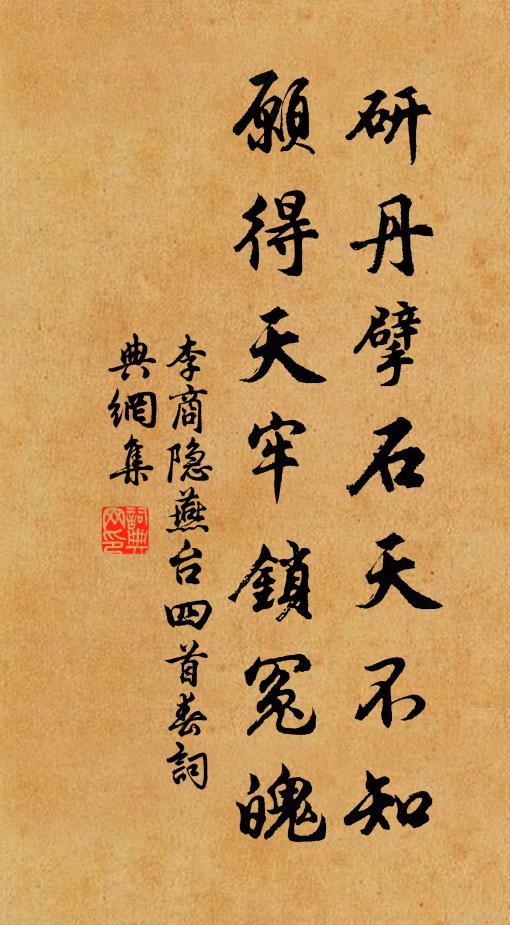 研丹擘石天不知
願得天牢鎖冤魄
李商隐燕台四首春詞
典網集
詞典
网印